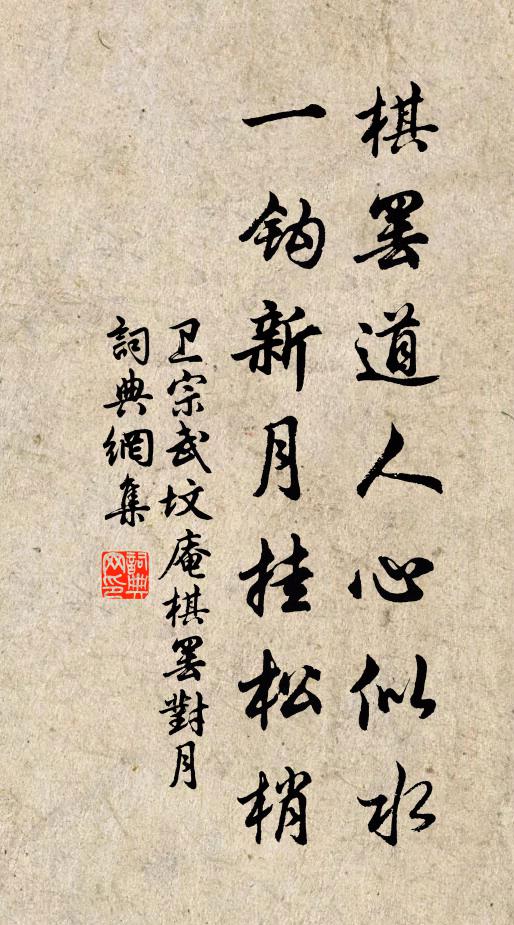 棋罢道人心似水
一钩新月挂松梢
卫宗武坟庵棋罢對月
詞典網集
詞典网印